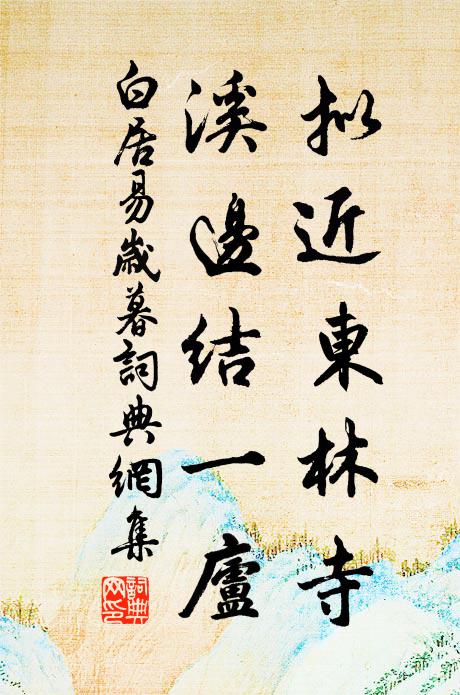 拟近東林寺
溪邊結一廬
白居易歲暮詞典網集
詞典网印